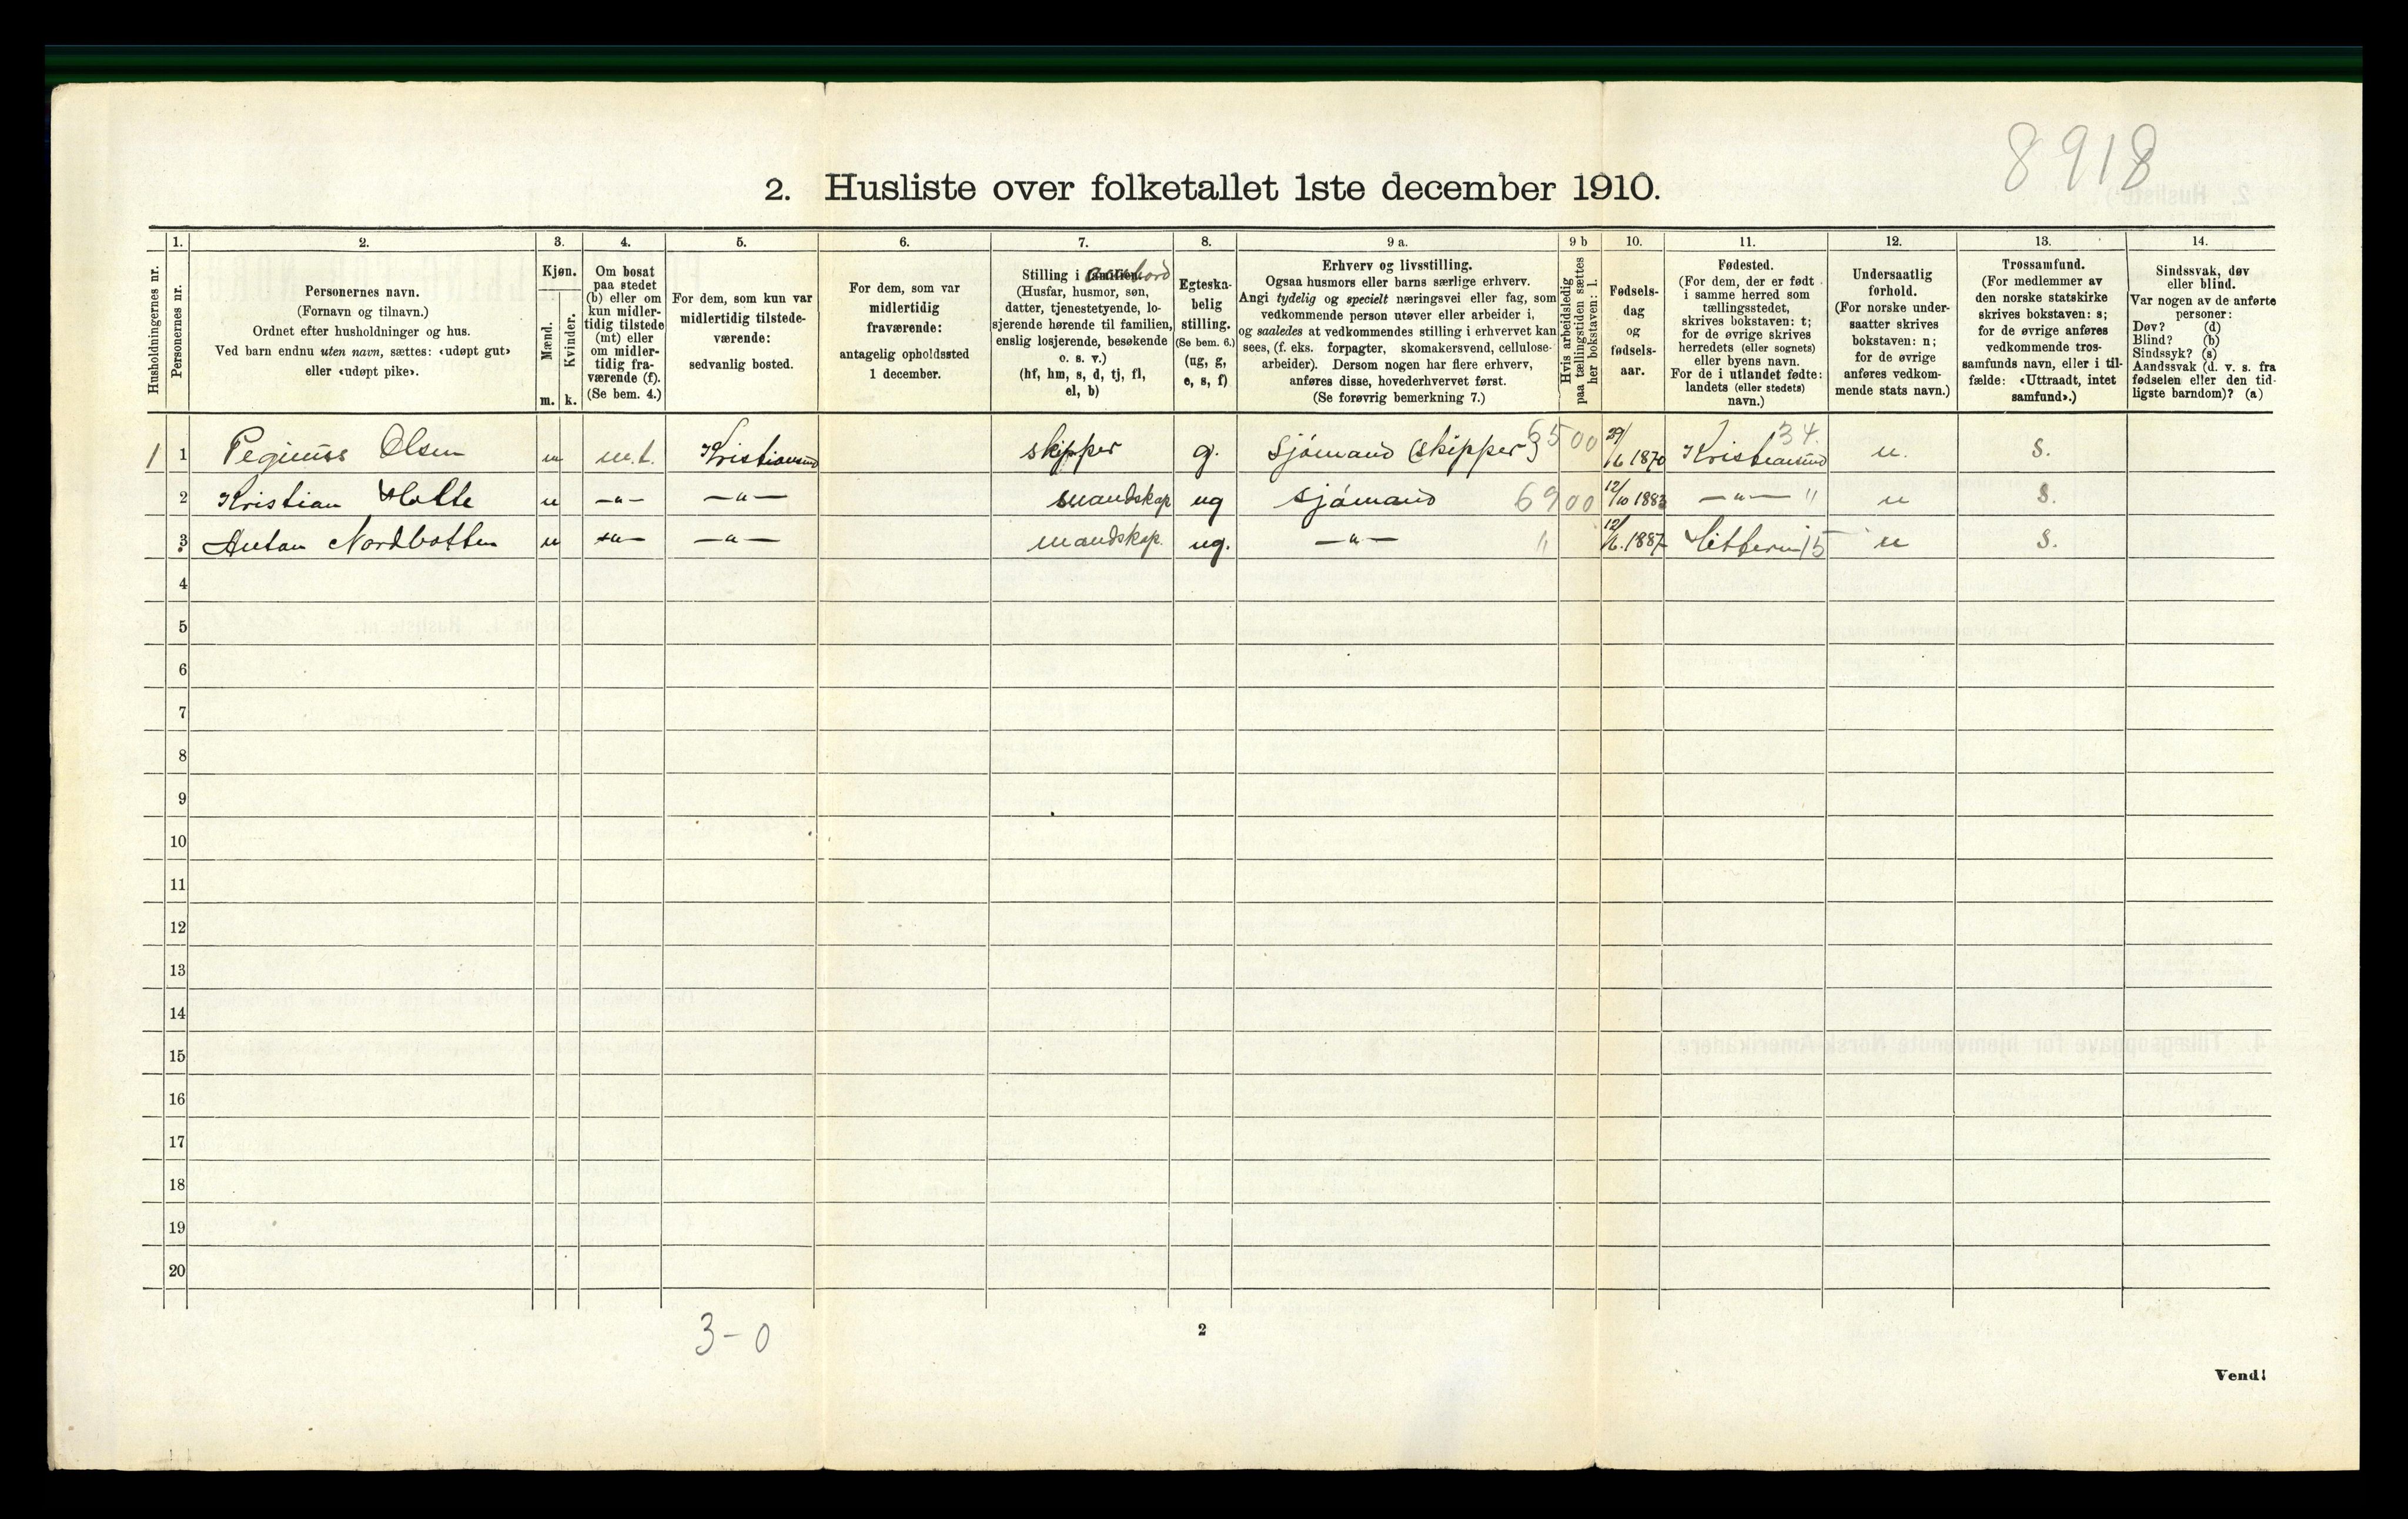 8918
2. Husliste over folketallet 1ste december 1910.
Husholdningernes nr.
1.
Personernes nr.
2.
Personernes navn.
(Fornavn og tilnavn.)
Ordnet efter husholdninger og hus.
Ved barn endnu uten navn, sættes: «udøpt gut»
eller «udøpt pike».
3.
Kjøn.
Mænd.
Kvinder.
m. k.
4.
Om bosat
paa stedet
(b) eller om
kun midler-
tidig tilstede
(mt) eller
om midler-
tidig fra-
værende (f).
(Se bem. 4.)
5.
For dem, som kun var
midlertidig tilstede-
værende:
sedvanlig bosted.
6.
For dem, som var
midlertidig
fraværende:
antagelig opholdssted
1 december.
7.
Stilling i familien.
(Husfar, husmor, søn,
datter, tjenestetyende, lo-
sjerende hørende til familien,
enslig losjerende, besøkende
o. s. v.)
(hf, hm, s, d, tj, fl,
el, b)
8.
Egteska-
belig
stilling.
(Se bem. 6.)
(ug, g,
e, s, f)
9 a.
Erhverv og livsstilling.
Ogsaa husmors eller barns særlige erhverv.
Angi tydelig og specielt næringsvei eller fag, som
vedkommende person utøver eller arbeider i,
og saaledes at vedkommendes stilling i erhvervet kan
sees, (f. eks. forpagter, skomakersvend, cellulose-
arbeider). Dersom nogen har flere erhverv,
anføres disse, hovederhvervet først.
(Se forøvrig bemerkning 7.)
9 b
Hvis arbeidsledig
paa tællingstiden sættes
her bokstaven: l.
10.
Fødsels-
dag
og
fødsels-
aar.
11.
Fødested.
(For dem, der er født
i samme herred som
tællingsstedet,
skrives bokstaven: t;
for de øvrige skrives
herredets (eller sognets)
eller byens navn.
For de i utlandet fødte:
landets (eller stedets)
navn.)
12.
Undersaatlig
forhold.
(For norske under-
saatter skrives
bokstaven: n;
for de øvrige
anføres vedkom-
mende stats navn.)
13.
Trossamfund.
(For medlemmer av
den norske statskirke
skrives bokstaven: s;
for de øvrige anføres
vedkommende tros-
samfunds navn, eller i til-
fælde: «Uttraadt, intet
samfund».)
14.
Sindssvak, døv
eller blind.
Var nogen av de anførte
personer:
Døv? (d)
Blind? (b)
Sindssyk? (s)
Aandssvak (d. v. s. fra
fødselen eller den tid-
ligste barndom)? (a)
1 1 Olsen m m.t. Kristiansund skipper g. Sjømand (skipper) 6500 29/6 1870 Kristiansund 34. n. s.
2 Kristian Holte m -"- -"- mandskap ug sjømand 6900 12/10 1883 -"- " n s.
3 Anton Nordbotten m -"- -"- mandskap. ug. -"- " 12/6. 1887 Hitteren 15 n s.
4
5
6
7
8
9
10
11
12
13
14
15
16
17
18
19
20
3-0
2
Vend!